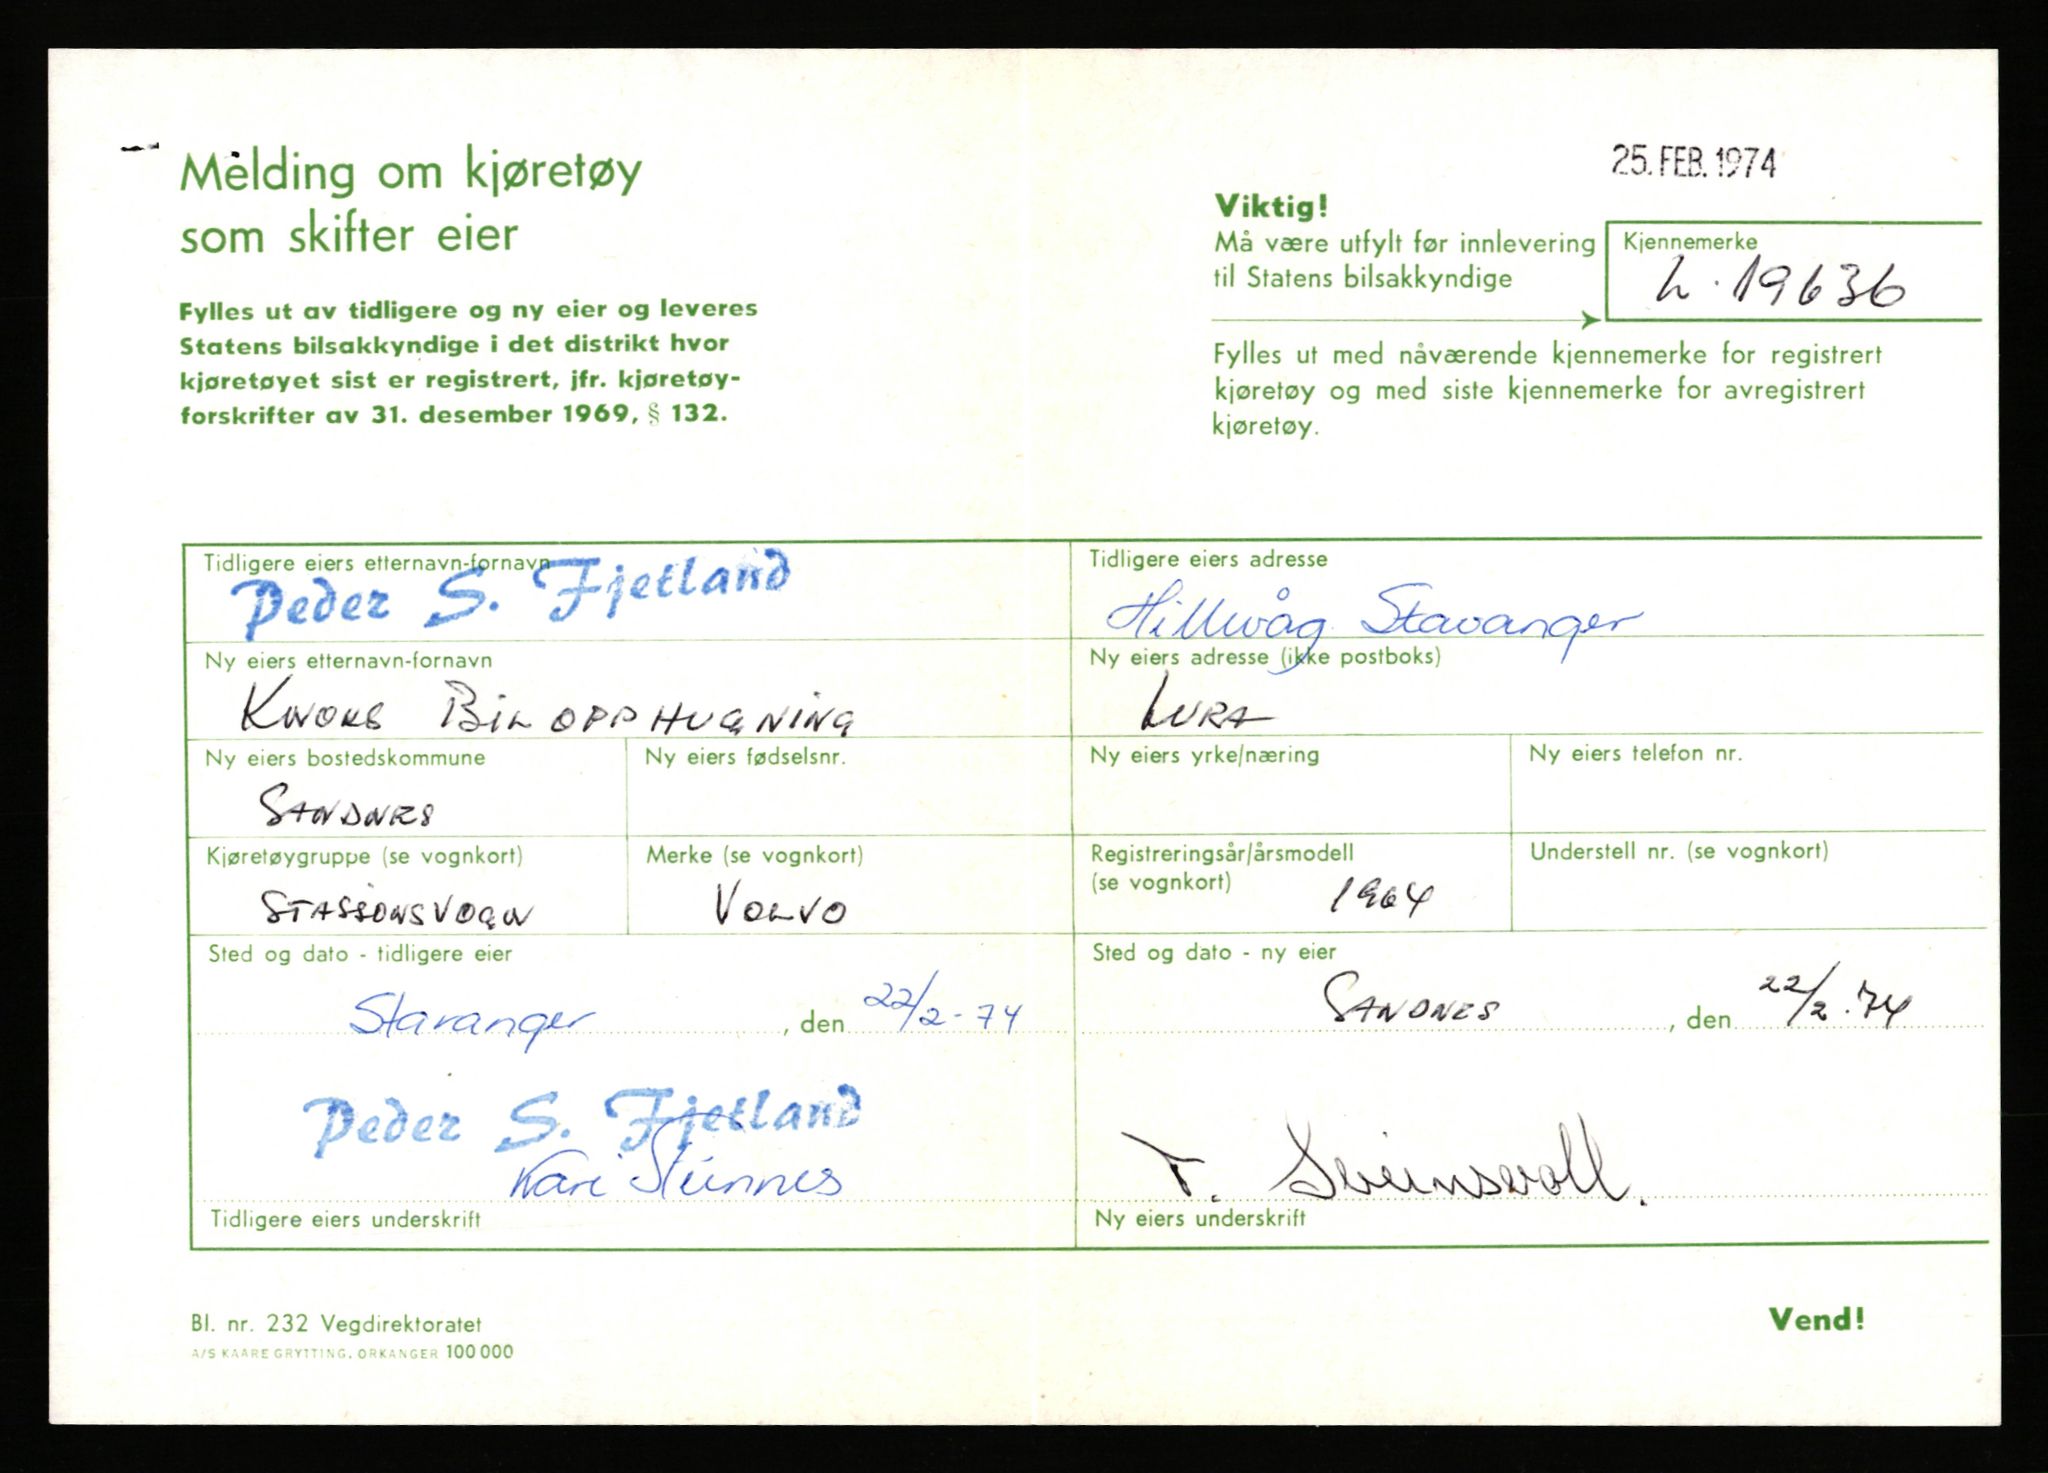 25. FEB. 1974
Melding om kjøretøy
som skifter eier
Fylles ut av tidligere og ny eier og leveres
Statens bilsakkyndige i det distrikt hvor
kjøretøyet sist er registrert, jfr. kjøretøy-
forskrifter av 31. desember 1969, § 132.
Viktig!
Må være utfylt før innlevering
til Statens bilsakkyndige
Kjennemerke
L. 19636
Fylles ut med nåværende kjennemerke for registrert
kjøretøy og med siste kjennemerke for avregistrert
kjøretøy.
Tidligere eiers etternavn-fornavn
Peder S. Fjetland
Tidligere eiers adresse
Hillevåg Stavanger
Ny eiers etternavn-fornavn
KNOKS BILOPPHUGNING
Ny eiers adresse (ikke postboks)
LURA
Ny eiers bostedskommune
SANDNES
Ny eiers fødselsnr.
Ny eiers yrke/næring
Ny eiers telefon nr.
Kjøretøygruppe (se vognkort)
STASSONSVOGN
Merke (se vognkort)
VOLVO
Registreringsår/årsmodell
(se vognkort) 1964
Understell nr. (se vognkort)
Sted og dato - tidligere eier
Stavanger, den 22/2-74
Sted og dato - ny eier
SANDNES, den 22/2.74
Peder S. Fjetland
Kari
Tidligere eiers underskrift
T. Sveinsvoll.
Ny eiers underskrift
Bl. nr. 232 Vegdirektoratet
A/S KAARE GRYTTING, ORKANGER 100 000
Vend!